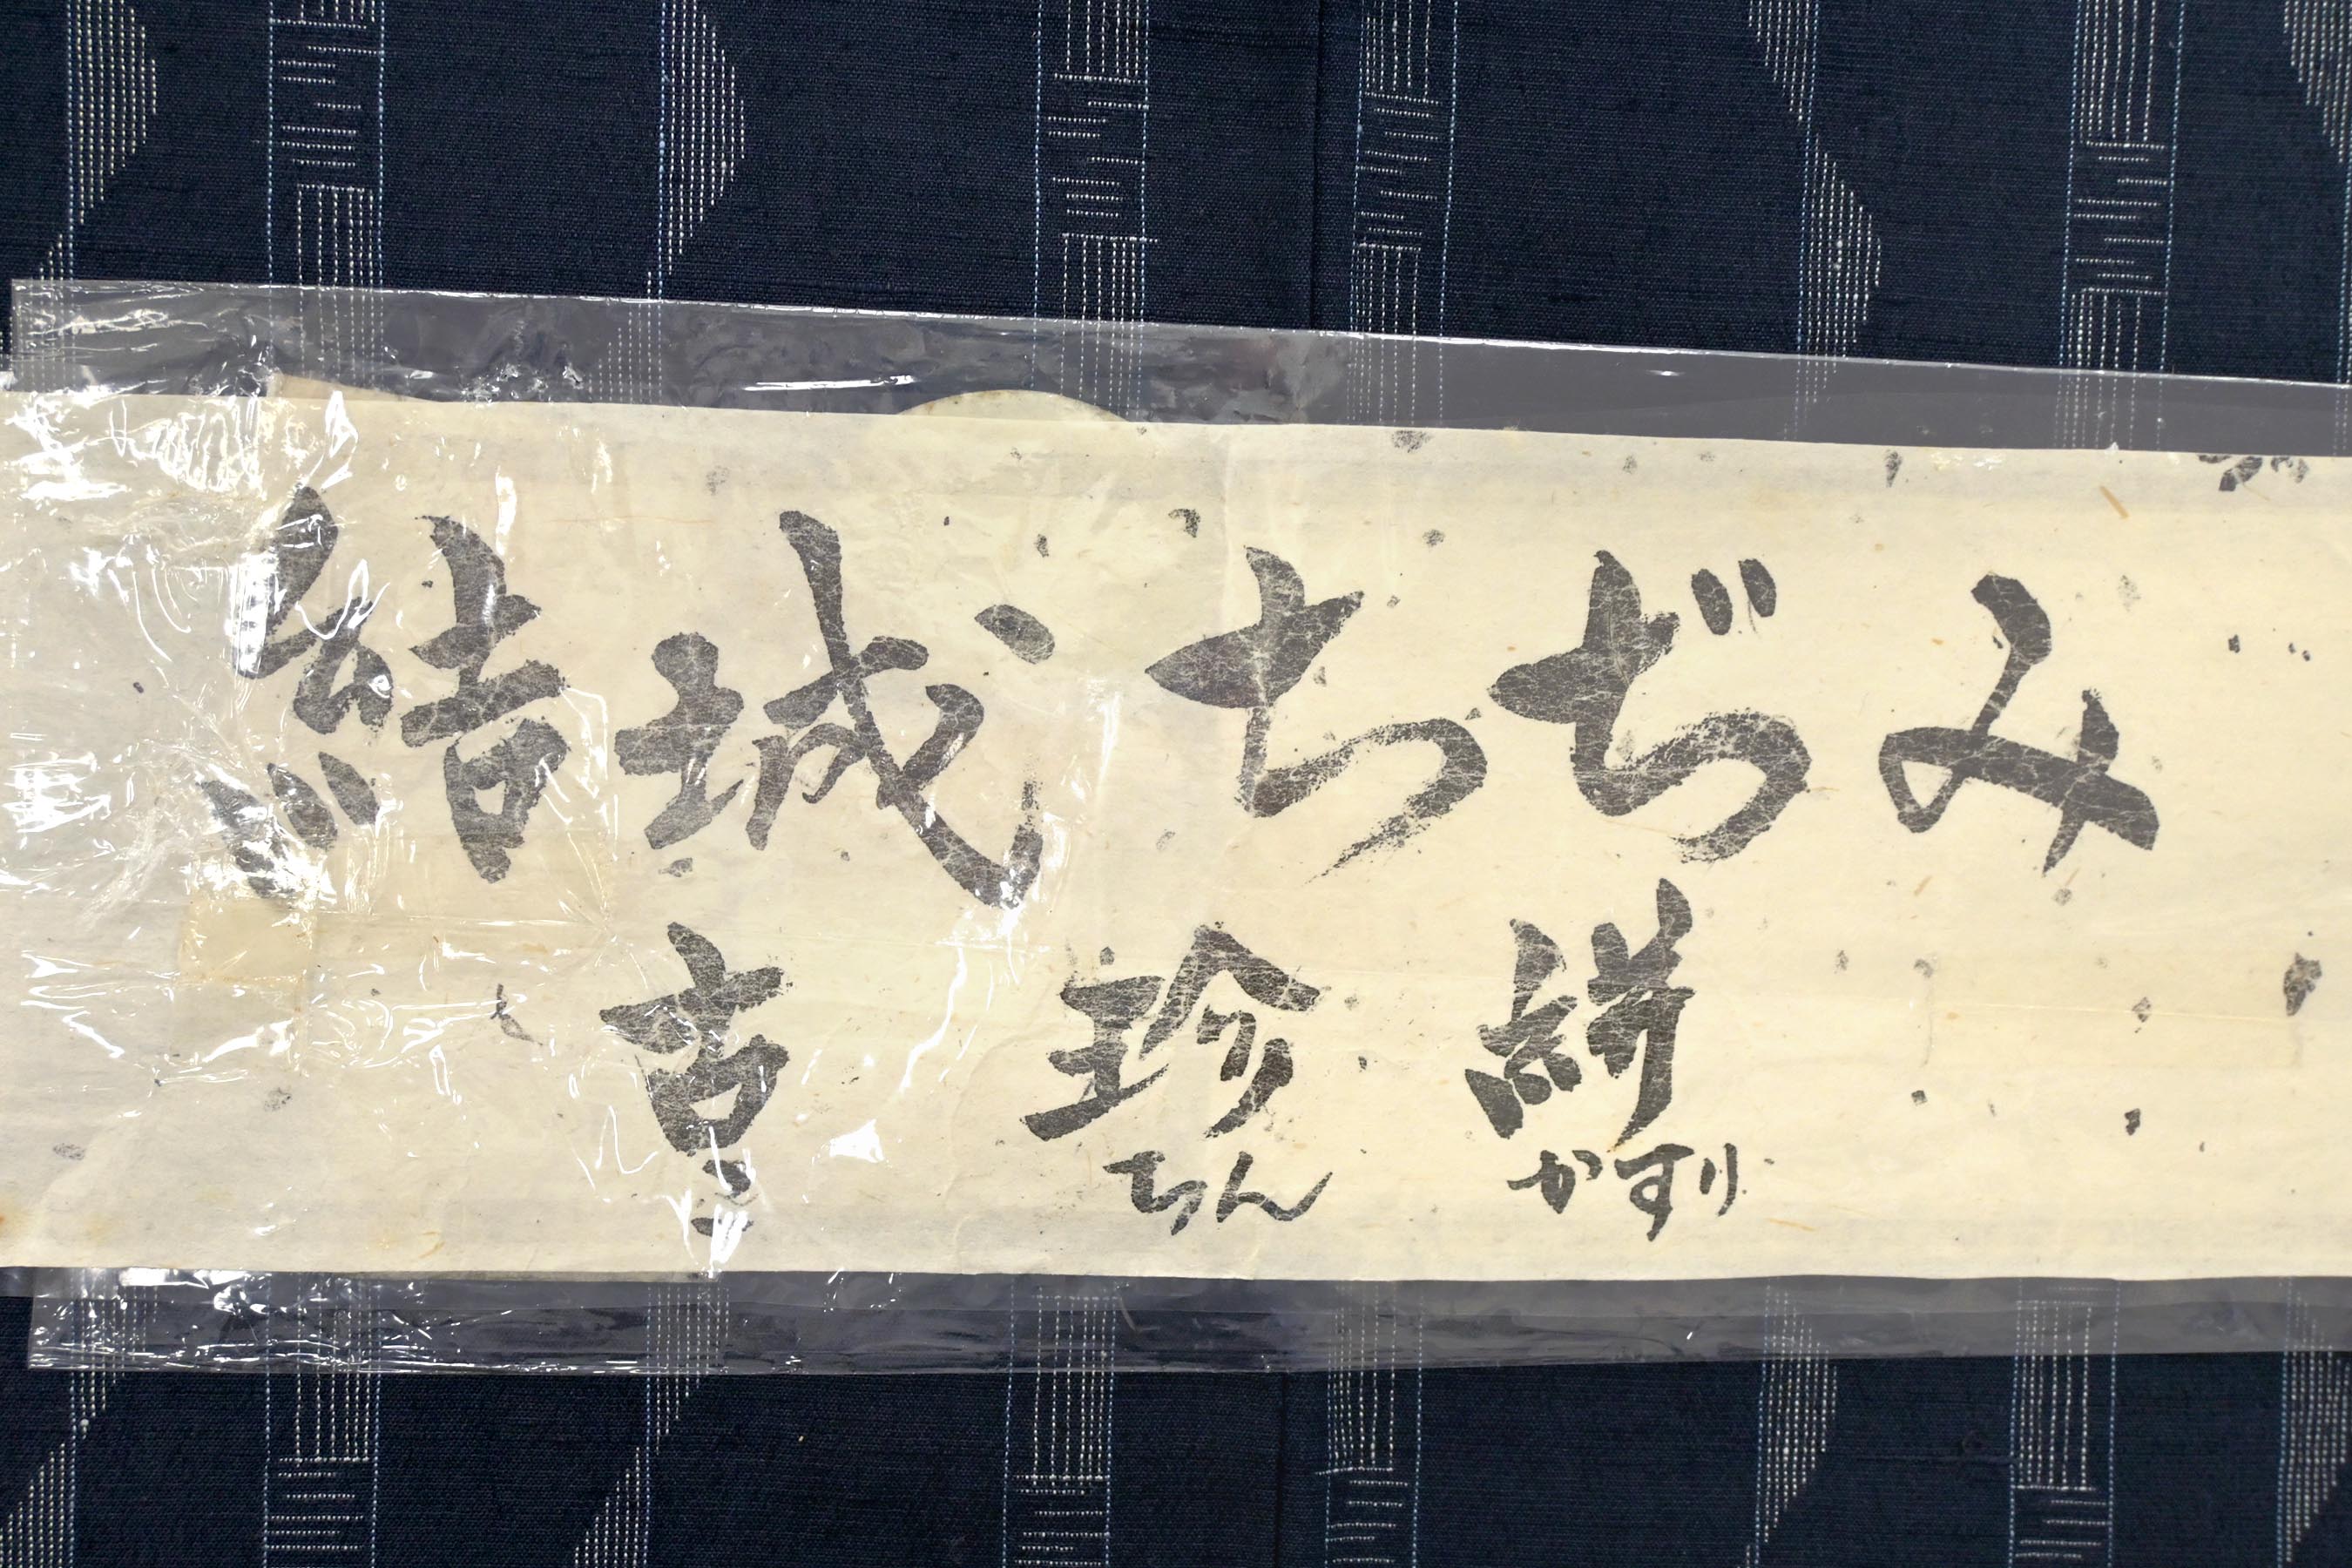 結城ちぢみ
古珍絣
こちんかすり